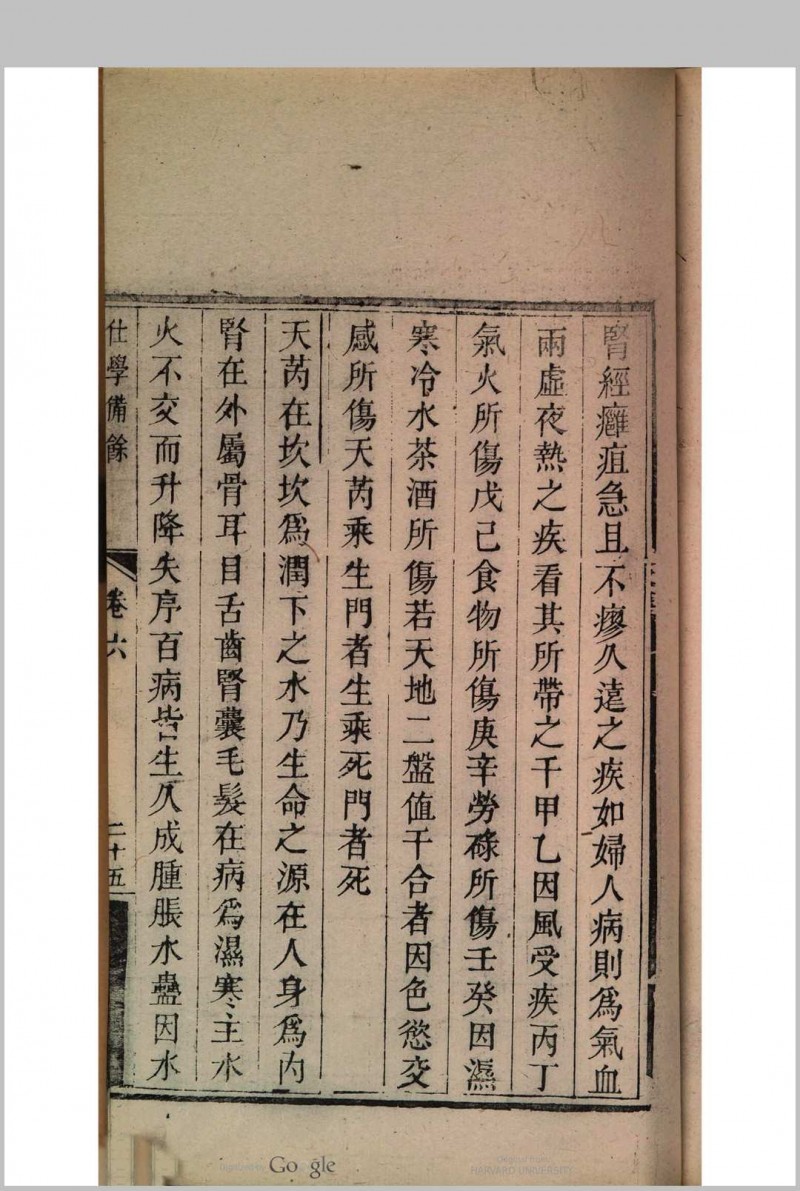 腎經癰疽急且不瘳久遠之疾如婦人病則爲氣血
兩虛夜熱之疾看其所帶之干甲乙因風受疾丙丁
氣火所傷戊己食物所傷庚辛勞碌所傷壬癸因濕
寒冷水茶酒所傷若天地二盤值干合者因色慾交
感所傷天芮乘生門者生乘死門者死
天芮在坎坎爲潤下之水乃生命之源在人身爲內
腎在外屬骨耳目舌齒腎囊毛髮在病爲濕寒主水
火不交而升降失序百病皆生久成腫脹水蠱因水
仕學備餘 卷六 二十五
Google
HARVARD UNIVERSITY